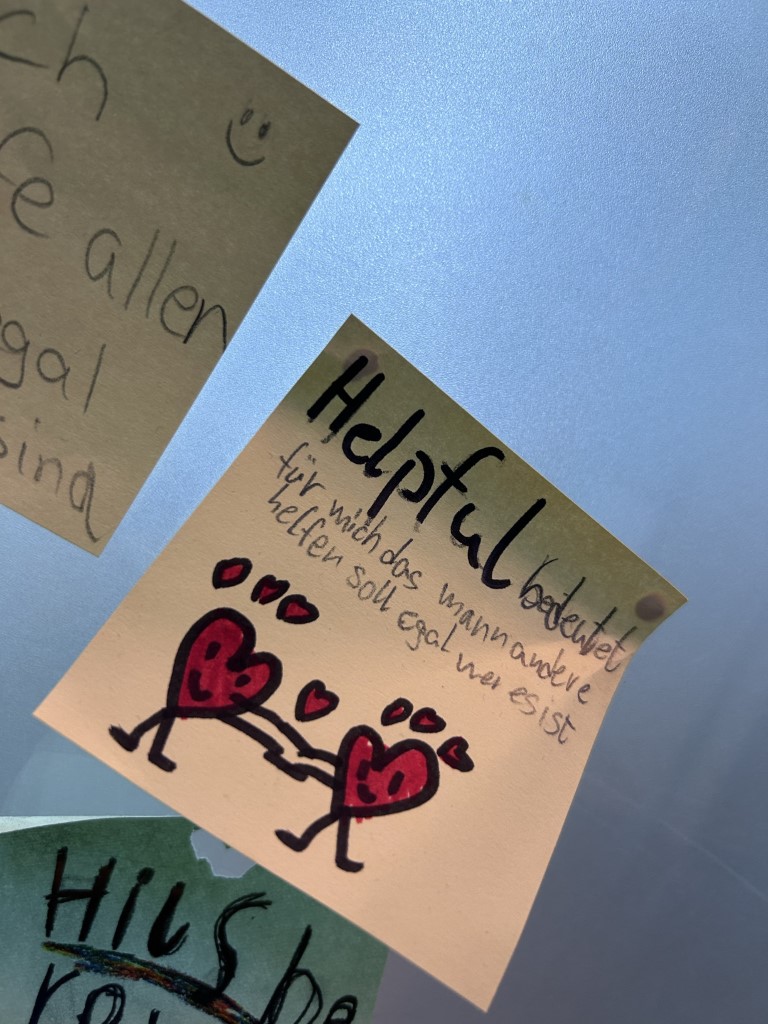 ch
fe allen
gal
sind
Helpful bedeutet
für mich das mann andere
helfen soll egal wer es ist
Hils be